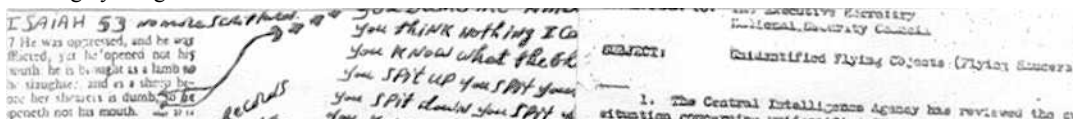 ISAIAH 53 no more scriptures
7 He was oppressed, and he was
fflicted, yet he opened not his
outh: he is brought as a lamb to
he slaughter: and as a sheep be-
ore her shearers is dumb, so he
peneth not his mouth.
records
You think nothing I Co
You know what the
You spit up you spit your
You spit down you spit
The Executive Secretary
National Security Council
SUBJECT: Unidentified Flying Objects (Flying Saucers
1. The Central Intelligence Agency has reviewed the
situation concerning